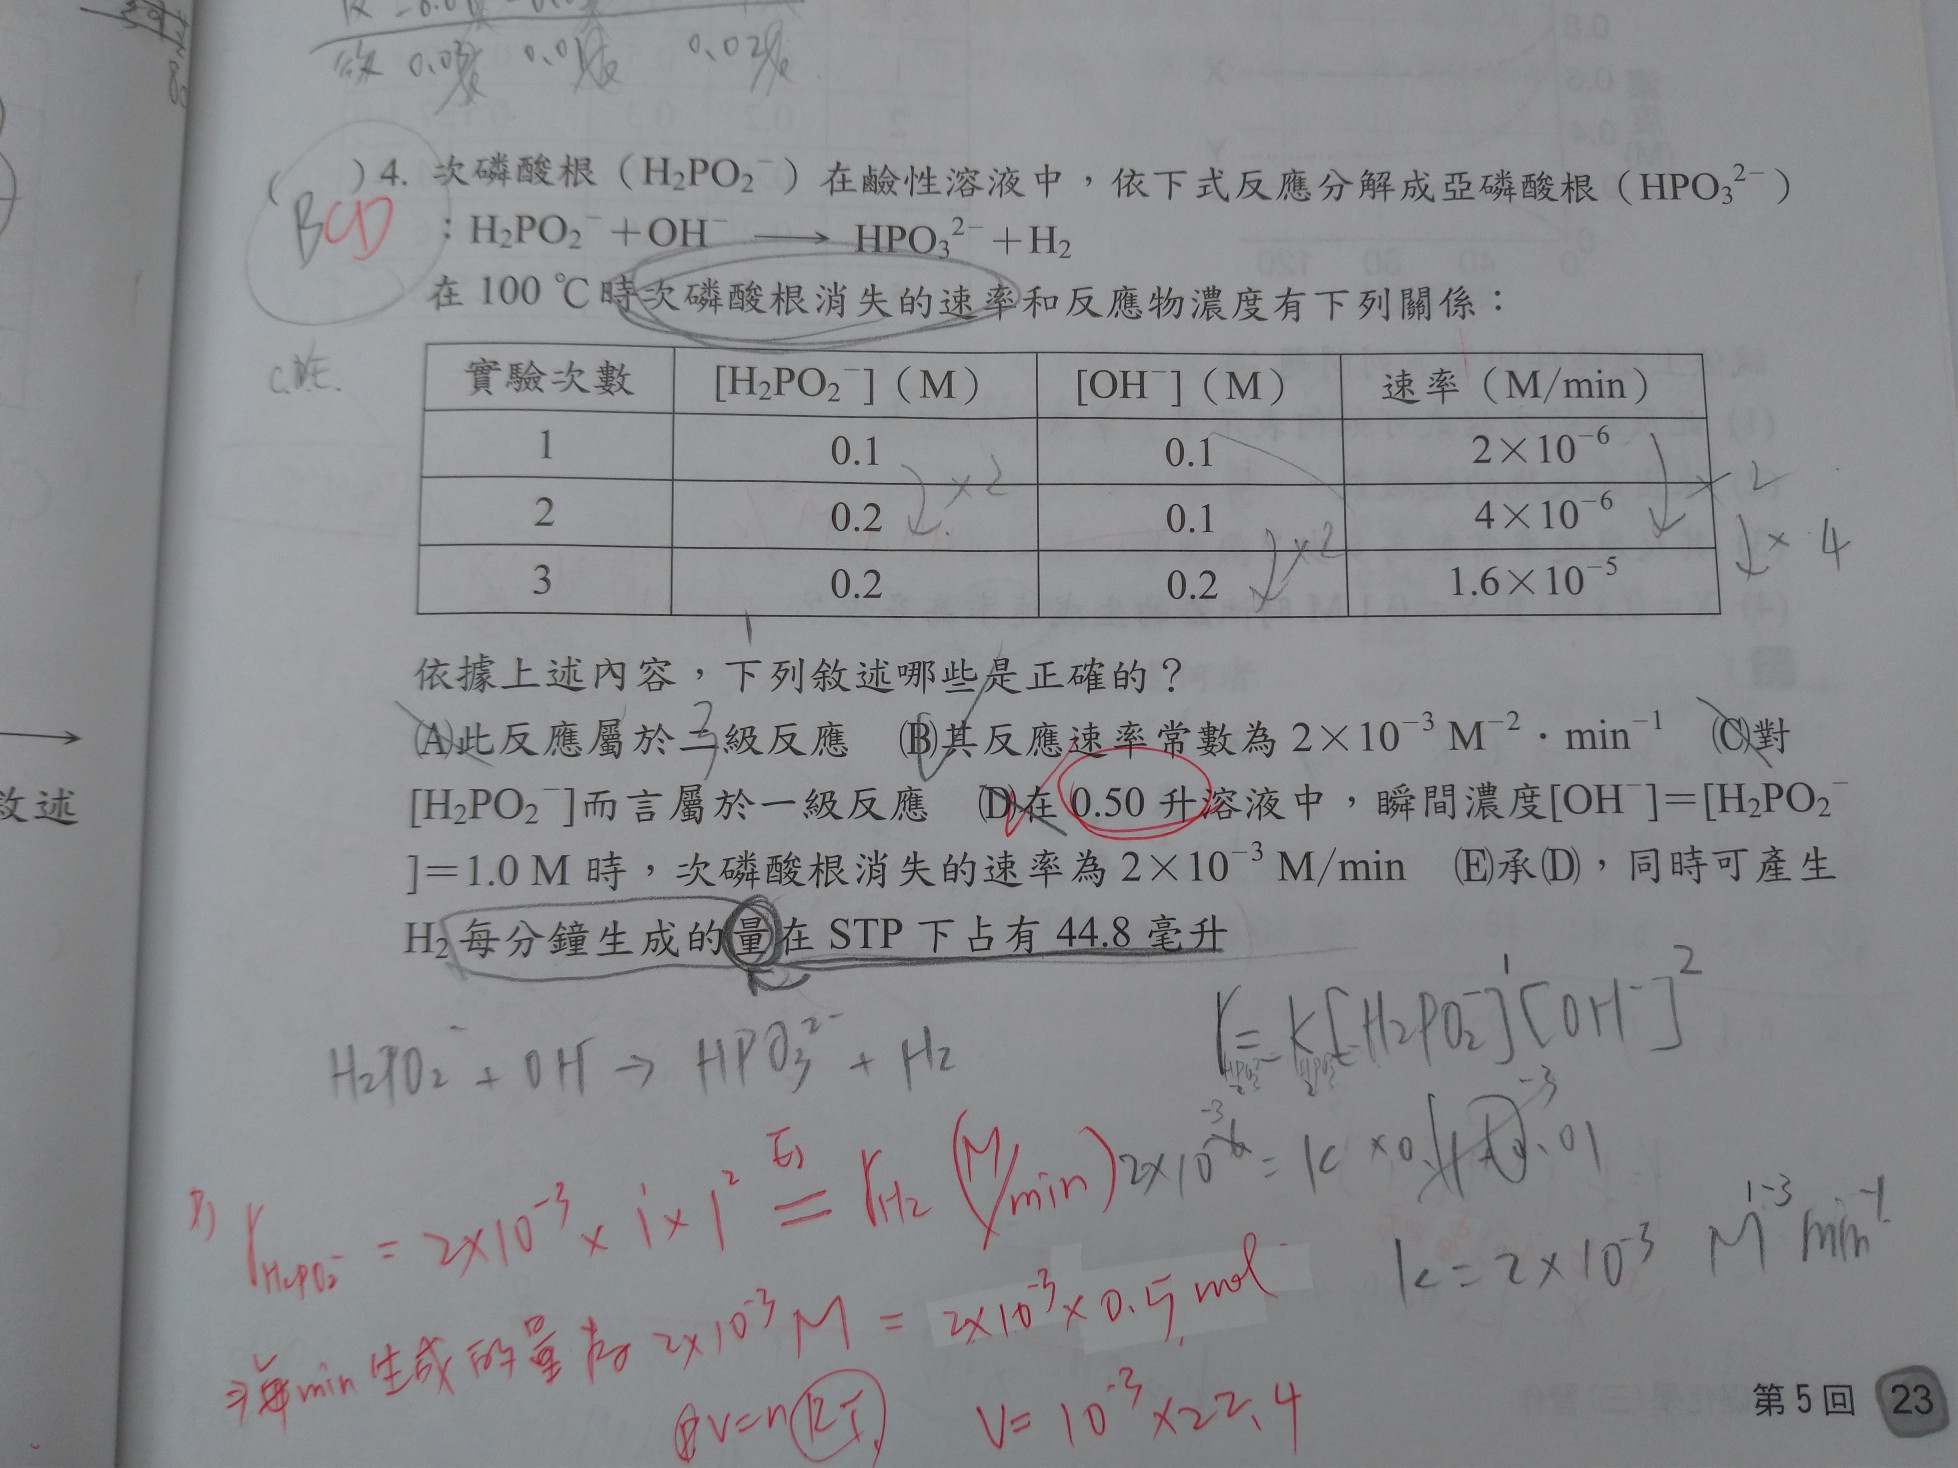 後 0.03 0.01 0.02
( )4. 次磷酸根（H₂PO₂⁻）在鹼性溶液中，依下式反應分解成亞磷酸根（HPO₃²⁻）
BCD
：H₂PO₂⁻＋OH⁻ ⟶ HPO₃²⁻＋H₂
在 100 ℃時次磷酸根消失的速率和反應物濃度有下列關係：
實驗次數 [H₂PO₂⁻]（M） [OH⁻]（M） 速率（M/min）
1 0.1 0.1 2×10⁻⁶
×2 ×2
2 0.2 0.1 4×10⁻⁶
×2 ×4
3 0.2 0.2 1.6×10⁻⁵
依據上述內容，下列敘述哪些是正確的？
(A)此反應屬於二級反應 (B)其反應速率常數為 2×10⁻³ M⁻²·min⁻¹ (C)對
3
[H₂PO₂⁻]而言屬於一級反應 (D)在 0.50 升溶液中，瞬間濃度[OH⁻]＝[H₂PO₂⁻
]＝1.0 M 時，次磷酸根消失的速率為 2×10⁻³ M/min (E)承(D)，同時可產生
H₂每分鐘生成的量在 STP 下占有 44.8 毫升
敘述
r = k[H₂PO₂⁻]¹[OH⁻]²
H₂PO₂⁻ + OH → HPO₃²⁻ + H₂
D) r H₂PO₂⁻ = 2×10⁻³ × 1 × 1² E) = r H₂ (M/min)
k = 2×10⁻³ M¹⁻³ min⁻¹
⇒每min生成的量為 2×10⁻³ M = 2×10⁻³×0.5 mol
PV=nRT, V= 10⁻³×22.4
第 5 回 23